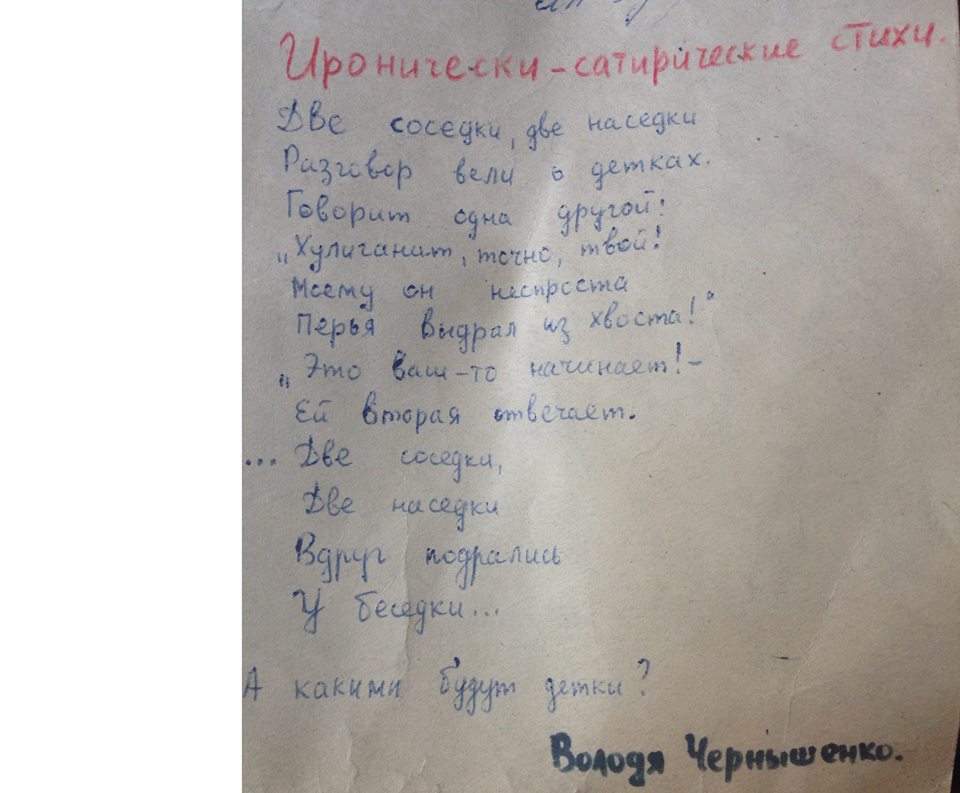 Иронически-сатирические стихи.
Две соседки, две наседки
Разговор вели о детках.
Говорит одна другой:
„Хулиганит, точно, твой!
Моему он неспроста
Перья выдрал из хвоста!"
„Это ваш-то начинает! –
Ей вторая отвечает.
... Две соседки,
Две наседки
Вдруг подрались
У беседки...
А какими будут детки?
Володя Чернышенко.